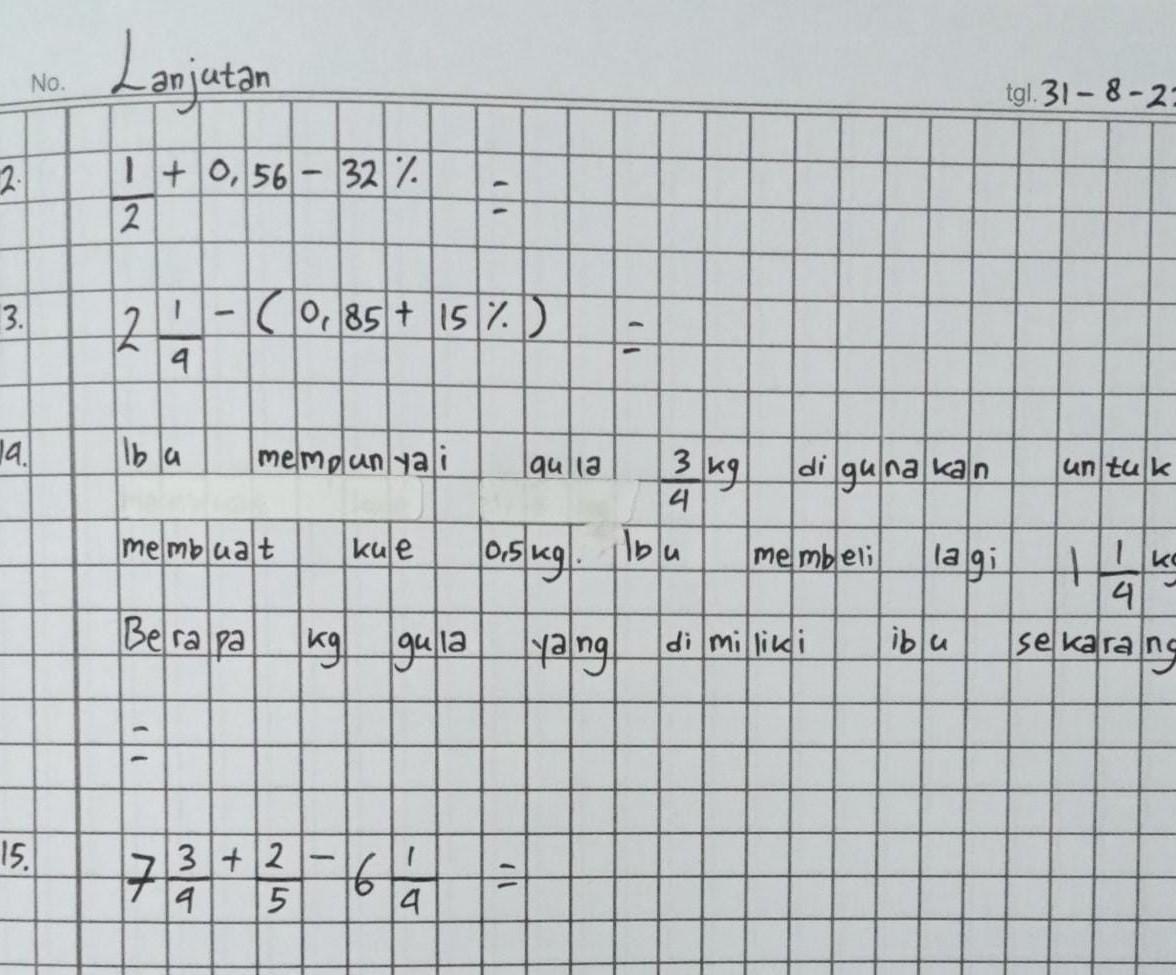 No. Lanjutan
tgl. 31-8-2
2. 1/2 + 0,56 - 32 % =
3. 2 1/4 - ( 0,85 + 15 % ) =
14. Ibu mempunyai gula 3/4 kg digunakan untuk
membuat kue 0,5 kg. Ibu membeli lagi 1 1/4 kg
Berapa kg gula yang dimiliki ibu sekarang
=
15. 7 3/4 + 2/5 - 6 1/4 =